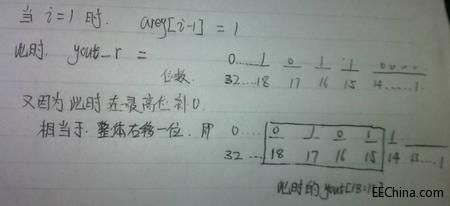 当 i=1 时. areg[i-1] = 1
此时. yout_r = 0...1 0 1 1 0000
位数. 32...18 17 16 15 14......1.
又因为此时在最高位补0.
相当于.整体右移一位.即 0... 0 1 0 1 1
32... 18 17 16 15 14 13......1
此时的yout[18:15]
EEChina.com